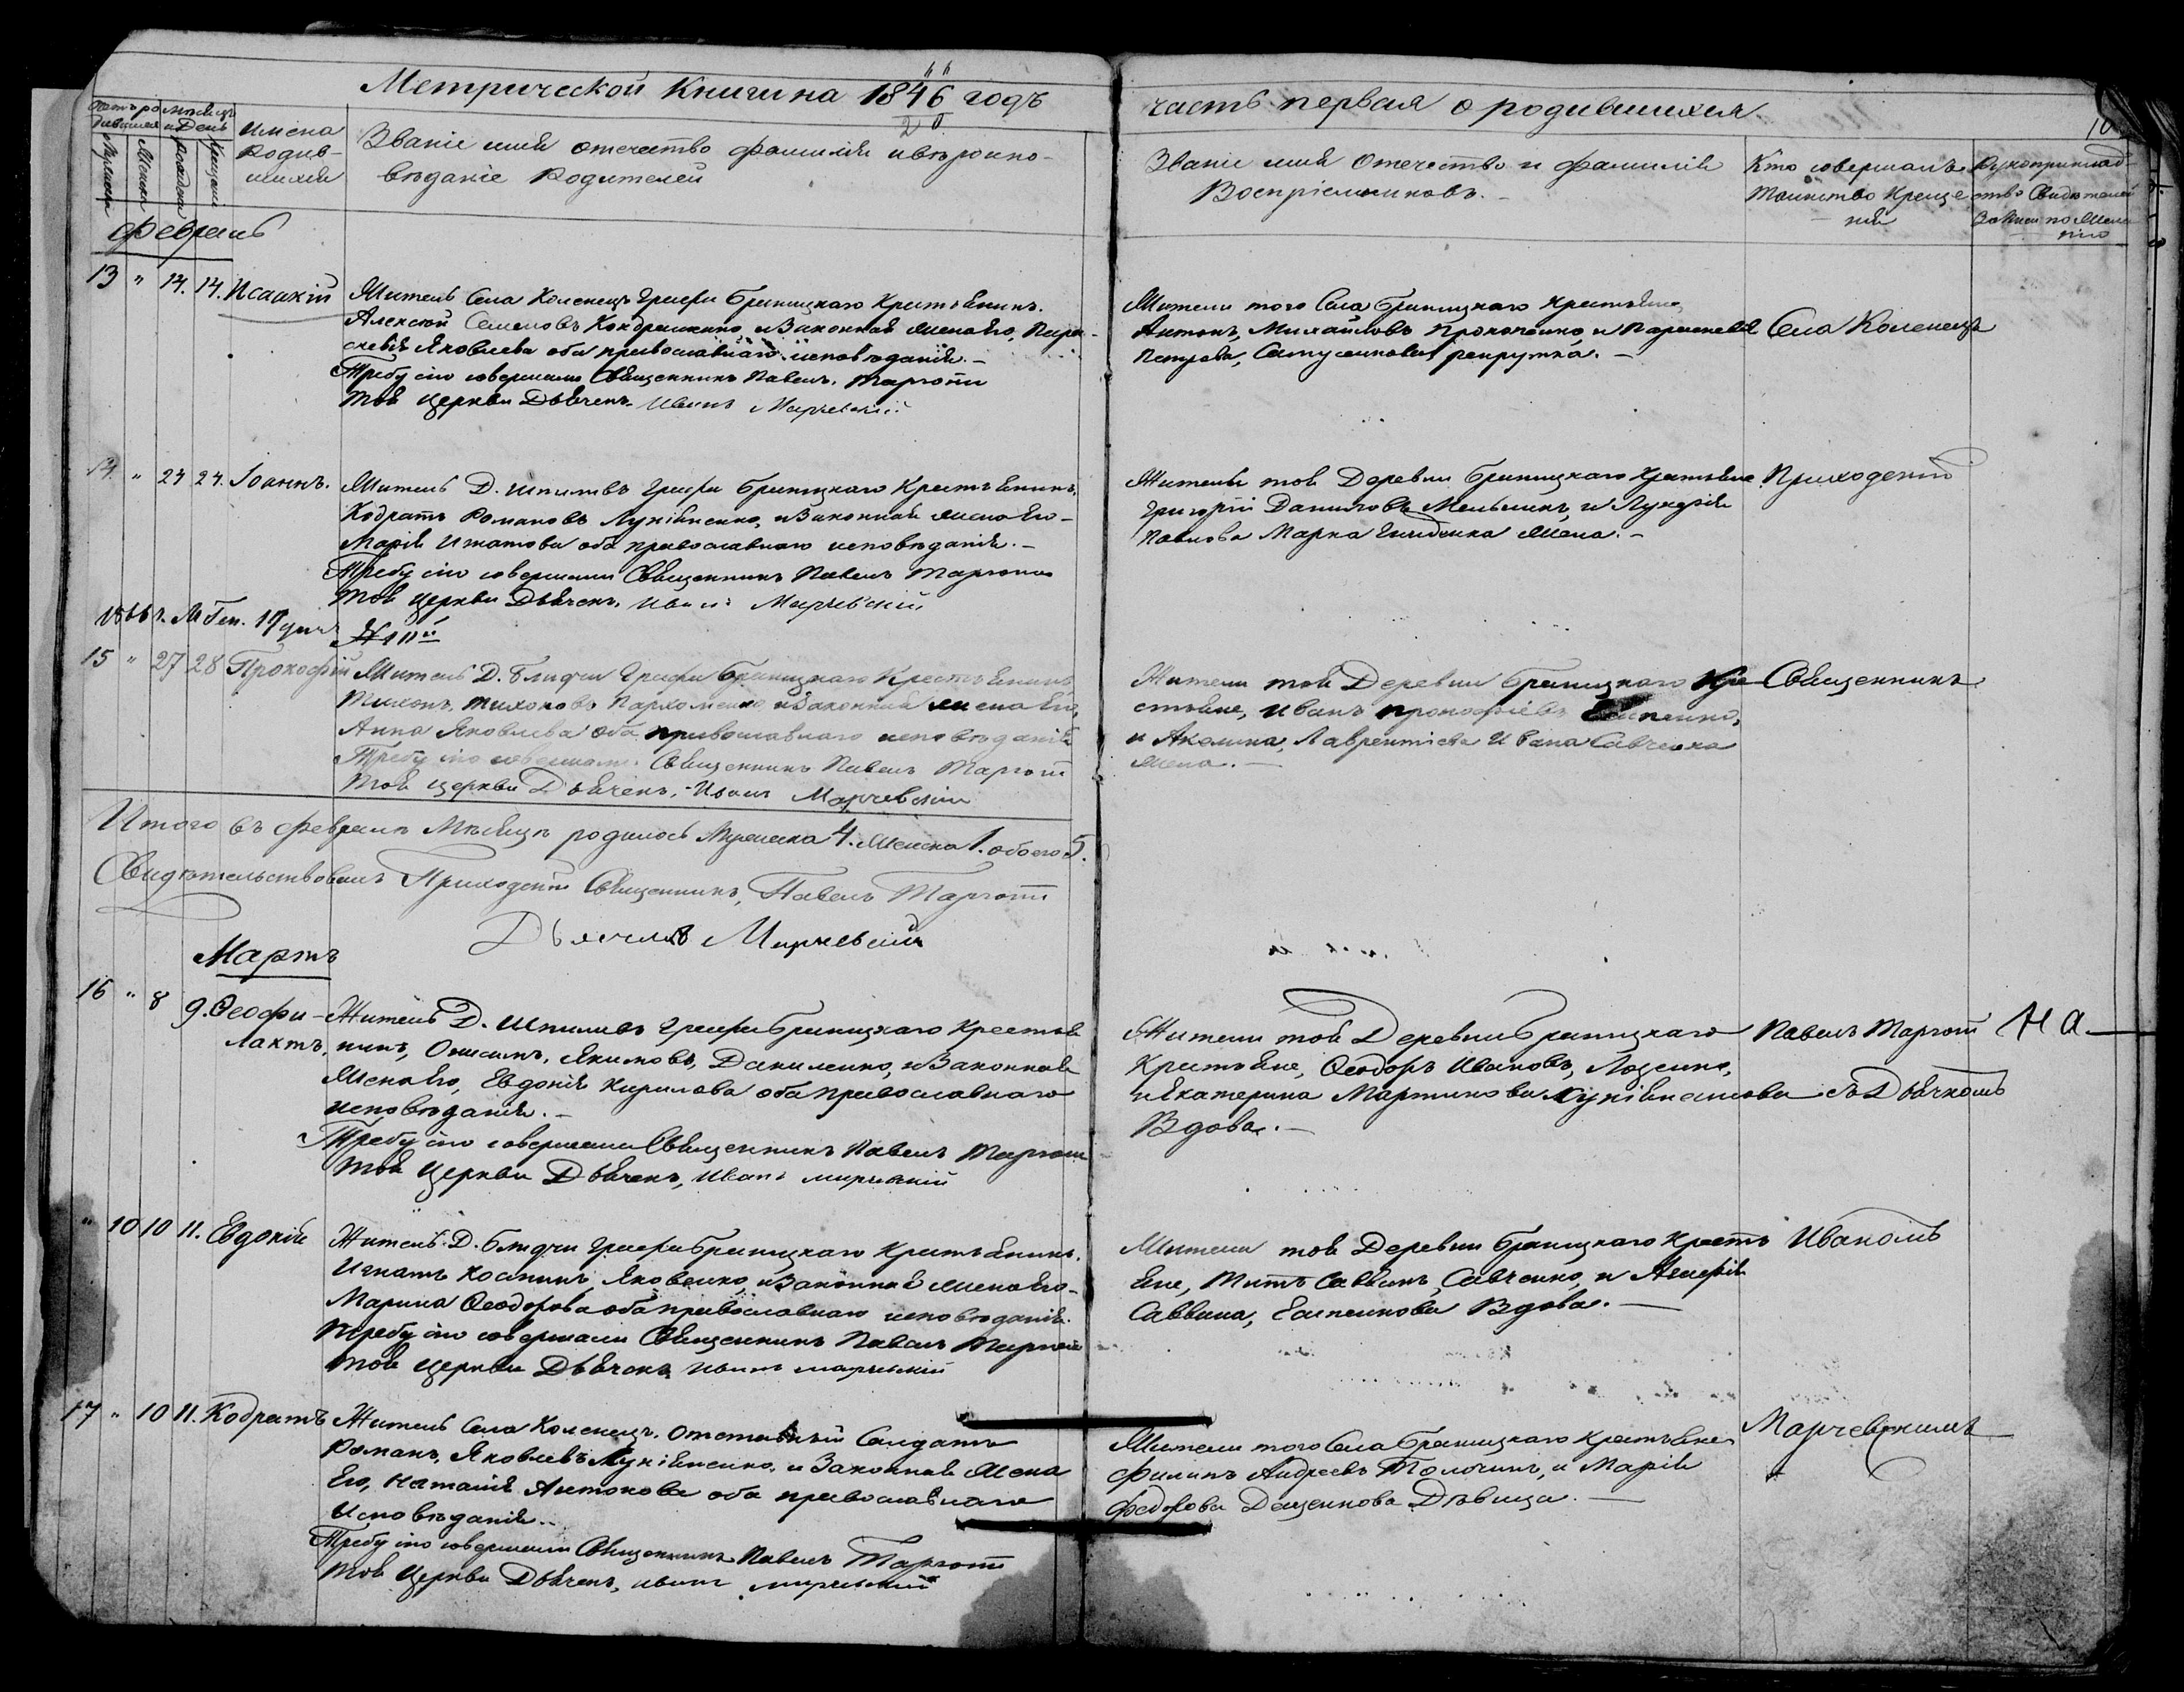 Метрической Книги на 1846 годъ
часть первая о родившихся.
Имена
Родив-
шихся
Званіе имя отечество фамилія и вѣроипо-
вѣданіе Родителей
Званіе имя Отечество и фамилія
Воспріемниковъ.
Кто совершалъ
Таинство Креще
нія
Рукоприклад
ство Свидѣтелей
Записи по Жела
нію
Февраль
13 " 14. 14. Исаакій
Житель Села Коленецъ Графа Браницкаго Крестьянинъ.
Алексѣй Семеновъ Кондратенко, и Законная жена Его, Пара-
скевія Яковлева оба православнаго исповѣданія.-
Требу сію совершали Священникъ Павелъ Тарготи
той Церкви Дьячекъ Иванъ Марчевскій
Жители того Села Браницкаго Крестьяне
Антонъ, Михайловъ Прокопенко, и Параскевія
Петрова, рекрутка.-
Села Коленецъ
14 " 24 24. Іоаннъ.
Житель Д. Шпилівъ Графа Браницкаго Крестьянинъ,
Кодратъ Романовъ Лукіяненко, и Законная жена Его-
Марія Игнатова оба православнаго исповѣданія.-
Требу сію совершали Священникъ Павелъ Тарготи
той Церкви Дьячекъ, Иванъ Марчевскій
Жители той Деревни Браницкаго Крестьяне
Григорій Даниловъ Мельникъ, и Лукерія
Павлова Марка жена.-
Приходскій
1866 г. М Ген. 17 дня
15 " 27 28 Прокофій
Житель Д. Блидчи Графа Браницкаго Крестьянинъ
Тихонъ, Тихоновъ Пархоменко и Законная жена Его,
Анна Яковлева оба православнаго исповѣданія
Требу сію совершали Священникъ Павелъ Тарготи
той Церкви Дьячекъ,-Иванъ Марчевскій
Жители той Деревни Браницкаго Кре
стьяне, Иванъ Прокофіевъ
и Акелина, Лаврентіева Ивана Савченка
жена.-
Священникъ
Итого въ февралѣ Мѣсяцѣ родилось Мужеска 4. Женска 1. обоего 5.
Свидѣтельствовалъ Приходскій Священникъ, Павелъ Тарготи
Дьячекъ Марчевскій
Мартъ
16 " 8 9. Ѳеофи-
лактъ,
Житель Д. Шпилівъ Графа Браницкаго Крестья
нинъ, Онисимъ, Якимовъ, Даниленко, и Законная
Жена Его, Евдокія Кирилова оба православнаго
исповѣданія.-
Требу сію совершали Священникъ Павелъ Тарготи
той Церкви Дьячекъ, Иванъ Марчевскій
Жители той Деревни Браницкаго
Крестьяне, Ѳеодоръ Ивановъ, Лоценко,
и Екатерина Мартинова Лукіяненкова
Вдова.-
Павелъ Тарготи
съ Дьячкомъ
На
" 10 10 11. Евдокія
Житель Д. Блидчи Графа Браницкаго Крестьянинъ.
Игнатъ Косминъ, Яковенко, и Законная жена Его-
Марина Ѳеодорова оба православнаго исповѣданія.
Требу сію совершали Священникъ Павелъ Тарготи
той Церкви Дьячекъ Иванъ Марчевскій
Жители той Деревни Браницкаго Кресть
яне, Титъ Саввинъ, Савченко, и
Саввина, Вдова.-
Иваномъ
17 " 10 11. Кодратъ
Житель Села Коленецъ. Отставный Солдатъ
Романъ, Яковлевъ Лукіяненко, и Законная Жена
Его, Наталія Антонова оба православнаго
Исповѣданія..
Требу сію совершали Священникъ Павелъ Тарготи
той Церкви Дьячекъ, Иванъ Марчевскій
Жители того Села Браницкаго Крестьяне
Филипъ Андреевъ Толочинъ, и Марія
Федорова Даценкова Дѣвица.-
Марчевскимъ